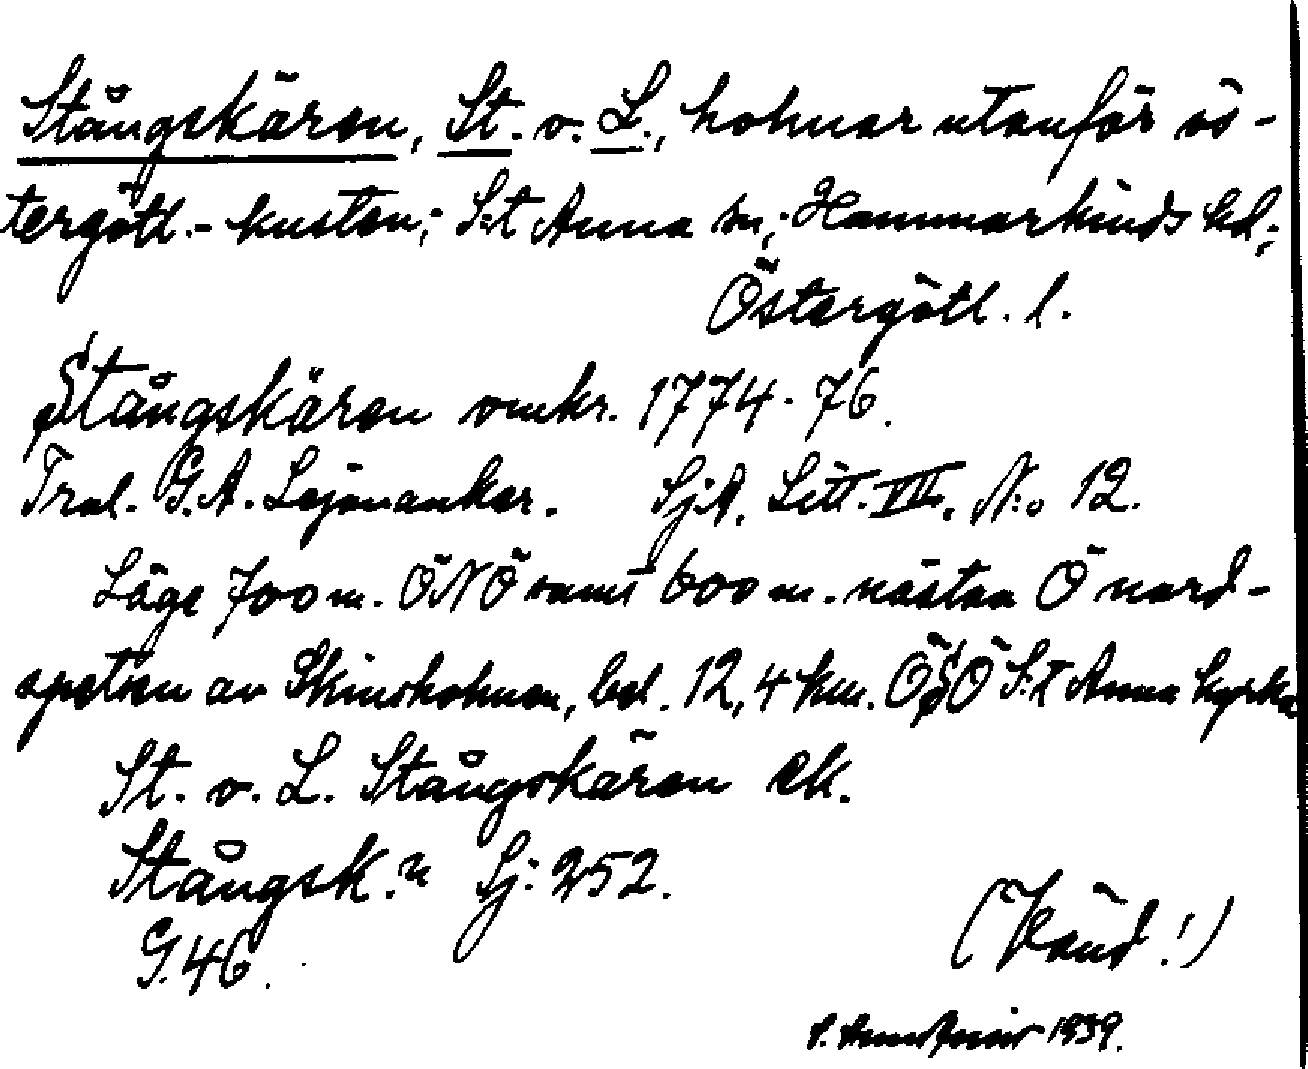 Stångskären, St. o. L., holmar utanför ös-
tergötl.-kusten; S:t Anna sn; Hammarkinds hd;
Östergötl. l.
Stångskären omkr. 1774-76.
Tral. G.A. Lejonanker. SjA. Litt. VIII. N:o 12.
Läge 700 m. ÖNÖ samt 600 m. nästan Ö nord-
spetsen av Skinsholmen, bel. 12,4 km. ÖSÖ S:t Anna kyrka
St. o. L. Stångskären ek.
Stångsk.n Sj: 252.
G. 46.
(Vänd!)
1939.